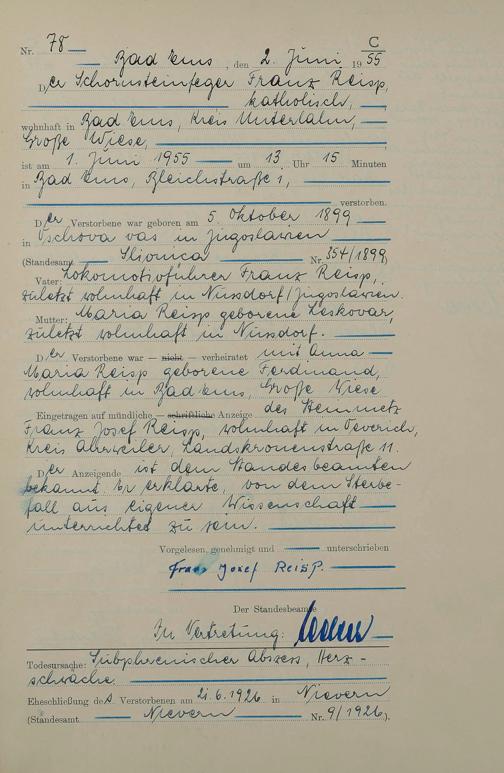 C
Nr. 78
Bad Ems, den 2. Juni 1955
Der Schornsteinfeger Franz Reisp,
katholisch,
wohnhaft in Bad Ems, Kreis Unterlahn,
Große Wiese,
ist am 1. Juni 1955 um 13 Uhr 15 Minuten
in Bad Ems, Bleichstraße 1,
verstorben.
Der Verstorbene war geboren am 5. Oktober 1899
in vas in Jugoslawien
(Standesamt Nr. 354/1899)
Vater: Lokomotivführer Franz Reisp,
zuletzt wohnhaft in Nussdorf/Jugoslawien.
Mutter: Maria Reisp geborene Leskovar,
zuletzt wohnhaft in Nussdorf.
Der Verstorbene war — nicht — verheiratet mit Anna
Maria Reisp geborene Ferdinand,
wohnhaft in Bad Ems, Große Wiese
Eingetragen auf mündliche — schriftliche Anzeige des Steinmetz
Franz Josef Reisp, wohnhaft in
Kreis Ahrweiler, Landskronenstraße 11.
Der Anzeigende ist dem Standesbeamten
bekannt. Er erklärte, von dem Sterbe-
fall aus eigener Wissenschaft
unterrichtet zu sein.
Vorgelesen, genehmigt und unterschrieben
Franz Josef Reisp.
Der Standesbeamte
In Vertretung:
Todesursache: Subphrenischer Abszess, Herz-
schwäche
Eheschließung des Verstorbenen am 21.6.1926 in Nievern
(Standesamt Nievern Nr. 9/1926).